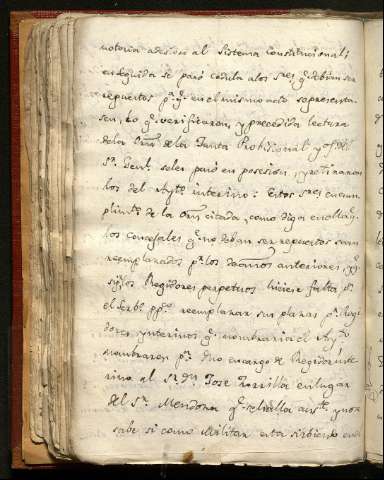 notoria adesion al Sistema Constitucional;
enseguida se pasó cedula a los Sres. q.e debian ser
repuestos p.a q.e en el mismo acto se presenta-
sen, lo q.e verificaron, y precedida lectura
de la Orn. de la Junta Probisional y of.
Sr. se les pusó en posesion, y retiraron
los del Ayto. interino: Estos Sres en cum-
plim.to de la Orn citada, como diga en ella q.e
los Concejales q.e no deban ser repuestos sean
reemplazados p.r los anteriores, y q.e
si p.r los Regidores perpetuos hiciese falta p.a
el Serbo. pp.co reemplazar sus plazas p.r Regi-
dores ynterinos q.e nombraria el Ayto.
nombraron p.a dho encargo de Regidor inte-
rino al Sr. Dn. Jose Zorrilla en lugar
del Sr. Mendoza q.e se halla aus.te y no se
sabe si como Militar esta sirbiendo